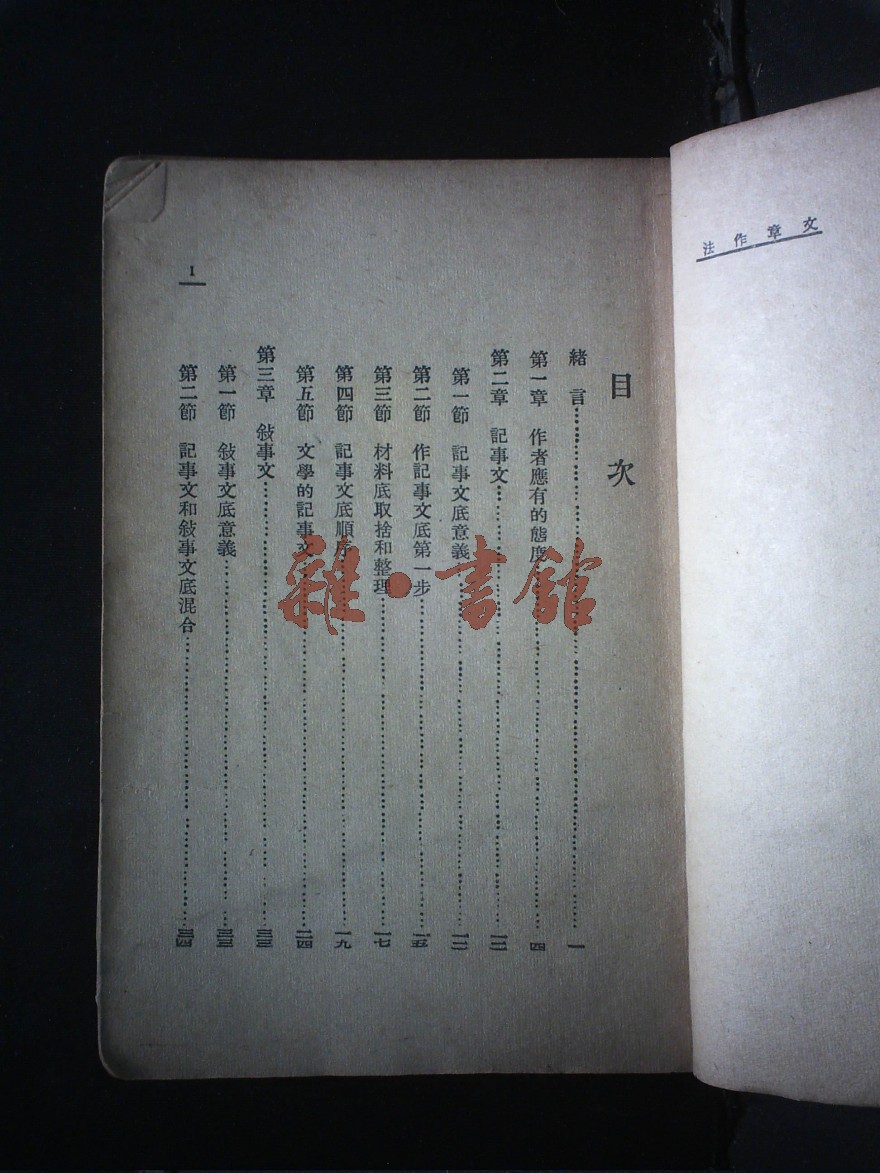 文章作法
目次
緒言……一
第一章 作者應有的態度……四
第二章 記事文……一二
第一節 記事文底意義……一二
第二節 作記事文底第一步……一五
第三節 材料底取捨和整理……一七
第四節 記事文底順序……一九
第五節 文學的記事文……二四
第三章 敍事文……三三
第一節 敍事文底意義……三三
第二節 記事文和敍事文底混合……三四
1
雜·書館